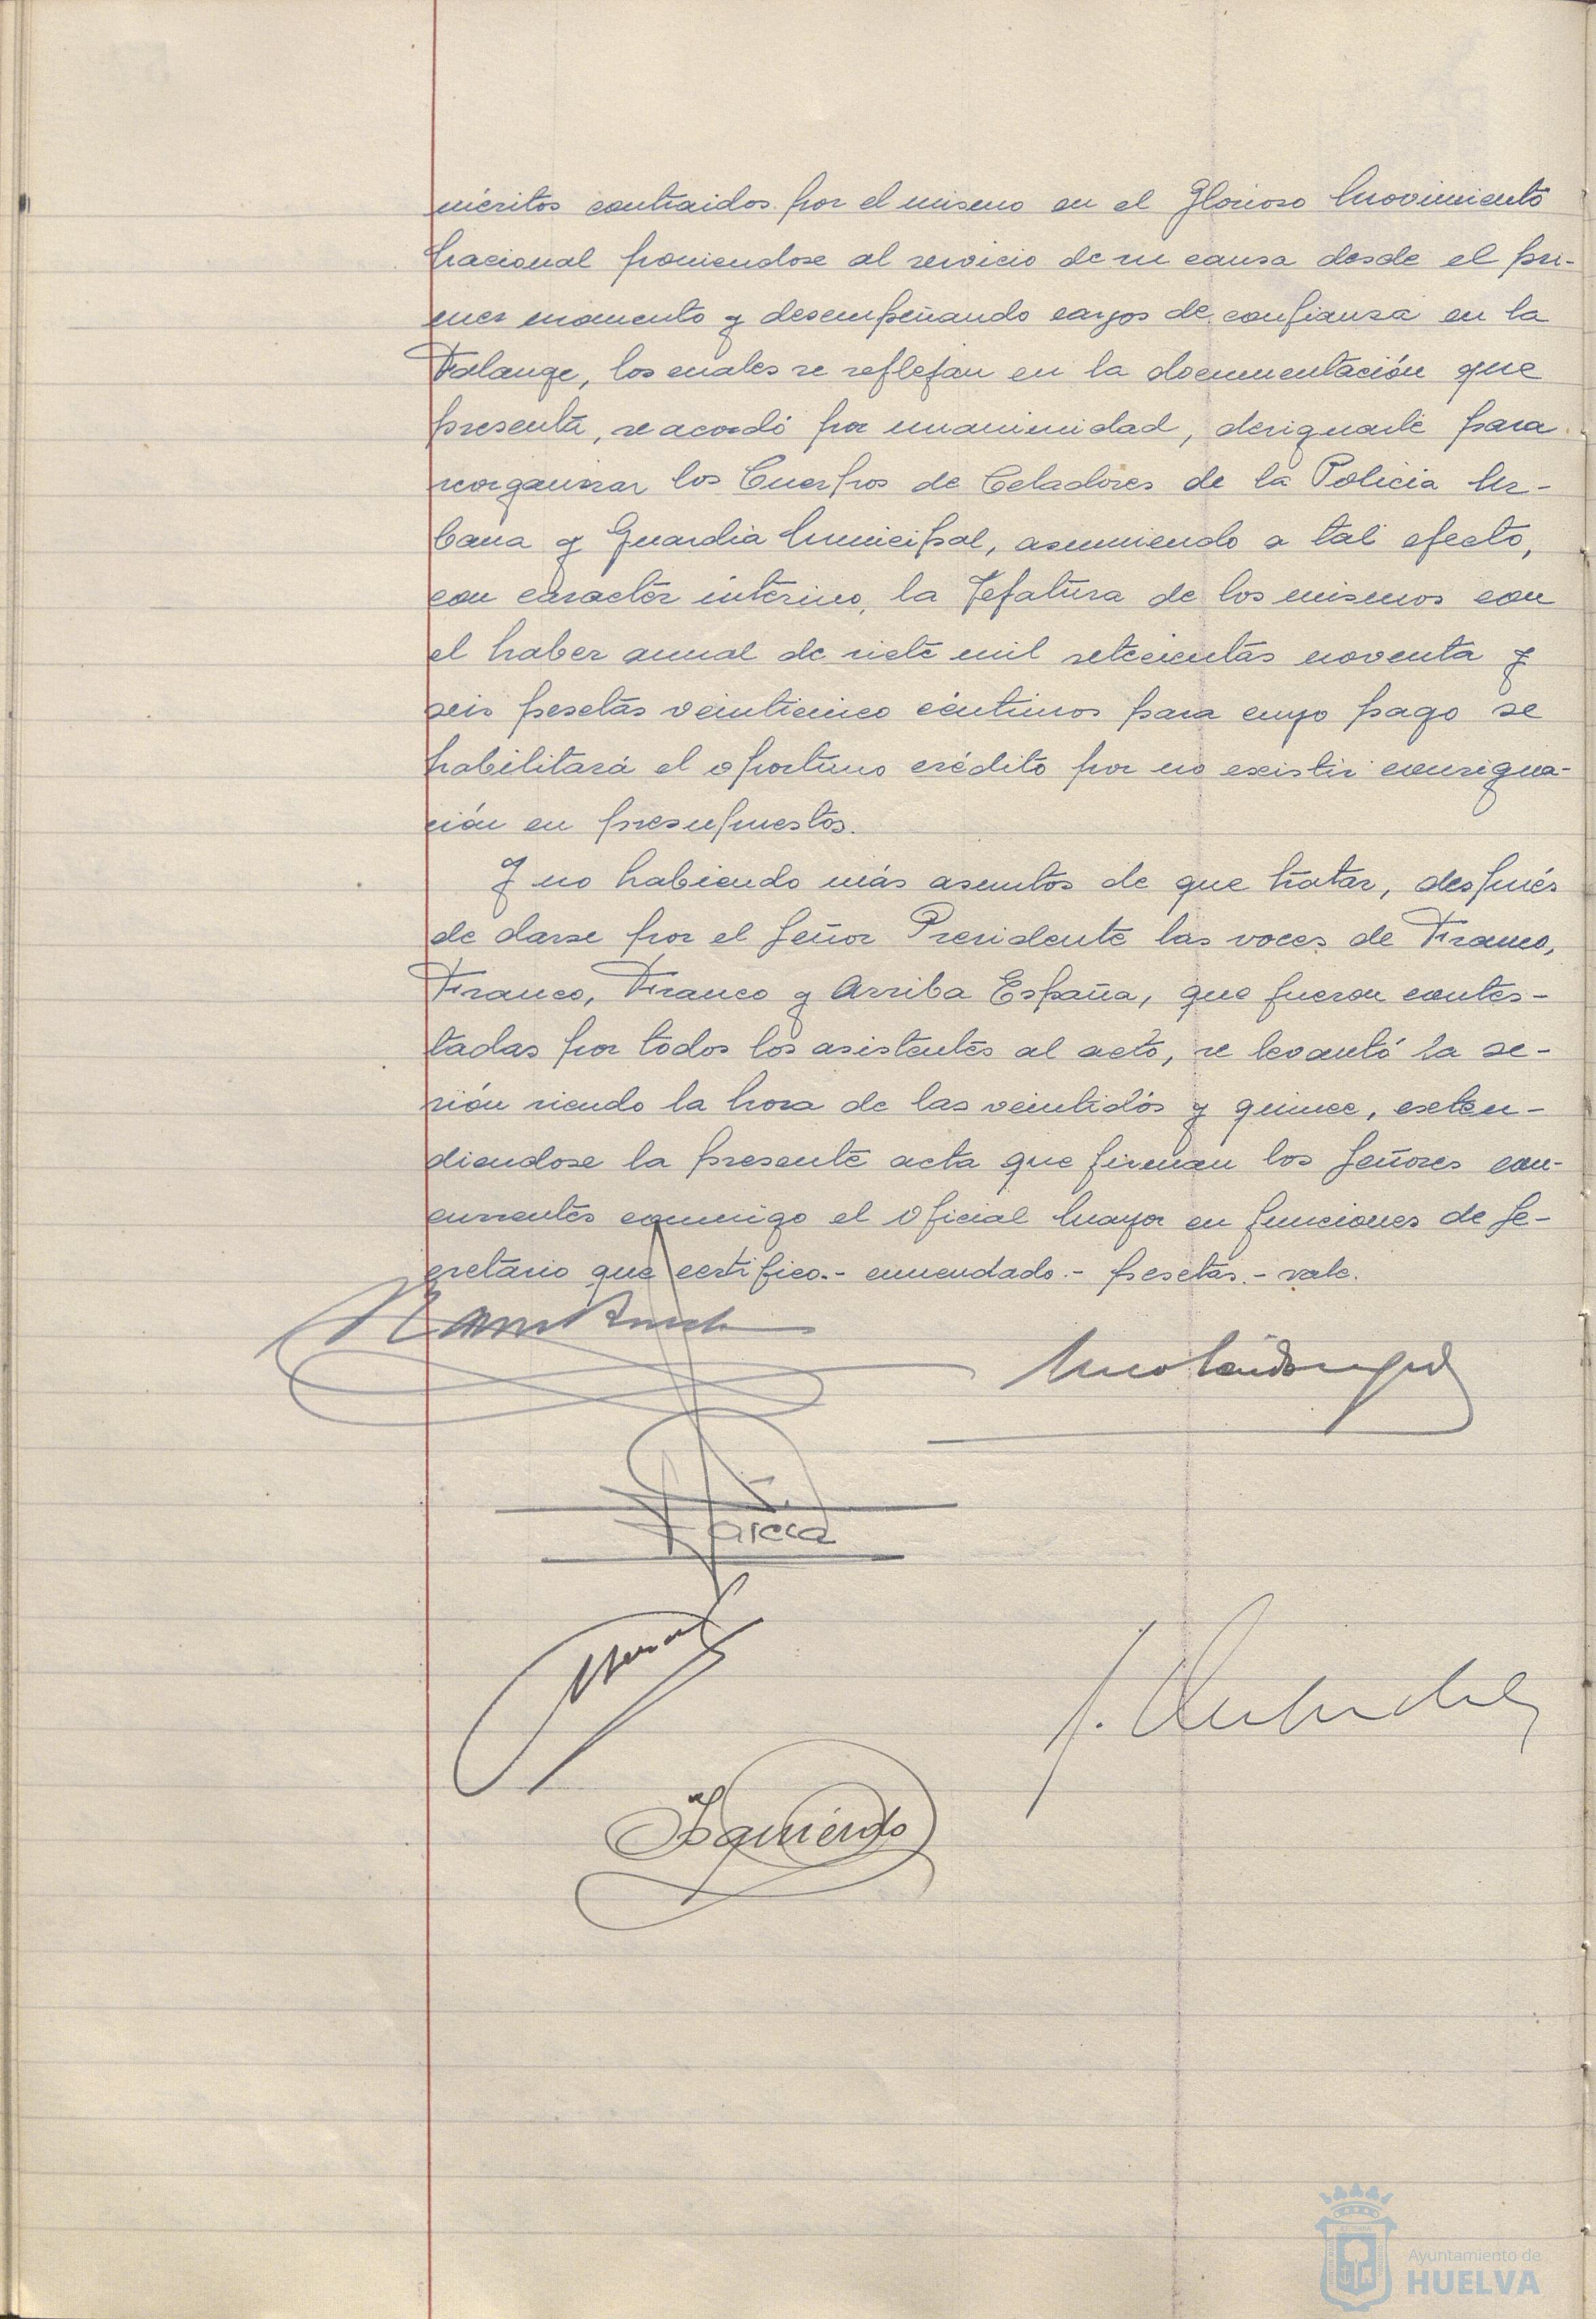 méritos contraidos por el mismo en el Glorioso Movimiento
Nacional poniendose al servicio de su causa desde el pri-
mer momento y desempeñando cargos de confianza en la
Falange, los cuales se reflejan en la documentación que
presenta, se acordó por unanimidad, designarle para
reorganizar los Cuerpos de Celadores de la Policia Ur-
bana y Guardia Municipal, asumiendo a tal efecto,
con caracter interino, la Jefatura de los mismos con
el haber anual de siete mil setecientas noventa y
seis pesetas veinticinco céntimos para cuyo pago se
habilitará el oportuno crédito por no existir consigna-
ción en presupuestos.
Y no habiendo más asuntos de que tratar, después
de darse por el Señor Presidente las voces de Franco,
Franco, Franco y Arriba España, que fueron contes-
tadas por todos los asistentes al acto, se levantó la se-
sión siendo la hora de las veintidós y quince, exten-
diendose la presente acta que firman los Señores con-
currentes conmigo el Oficial Mayor en funciones de Se-
cretario que certifico.- enmendado.- pesetas.- vale.
García
Izquierdo
Ayuntamiento de
HUELVA